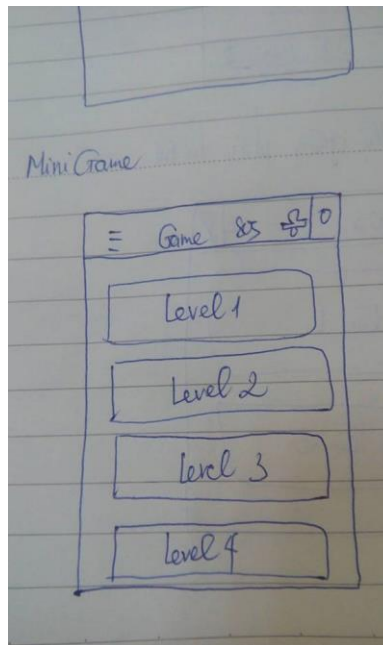 Mini Game
Game 85 0
Level 1
Level 2
Level 3
Level 4